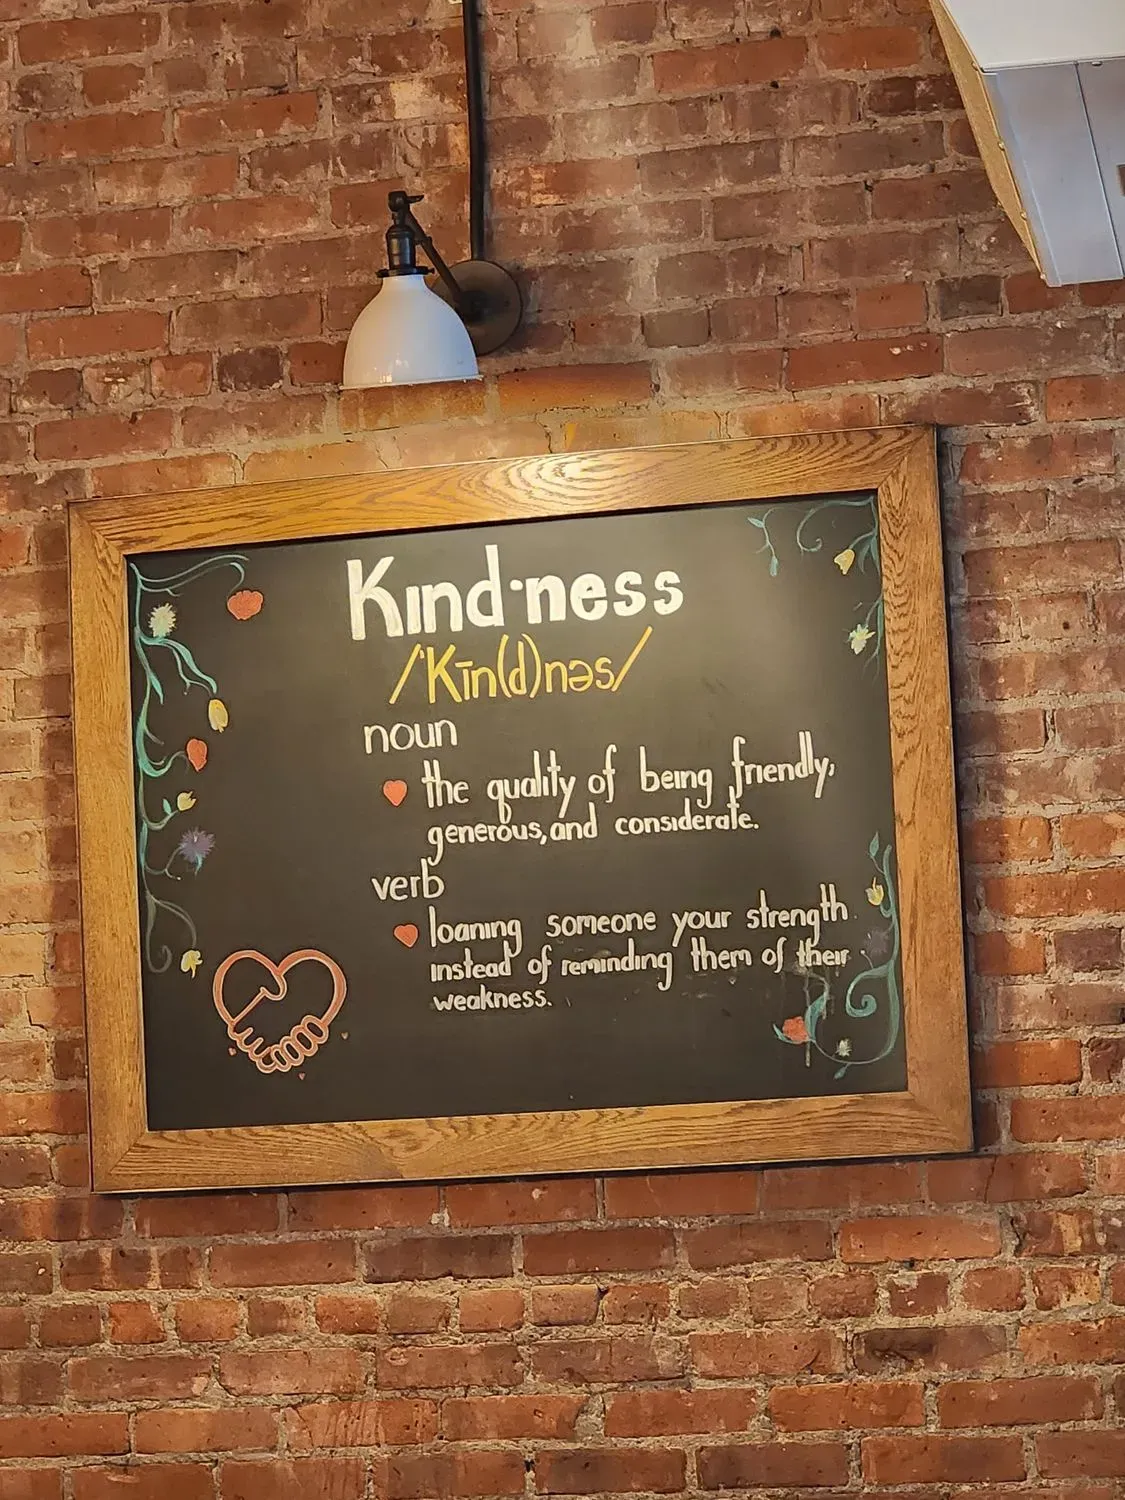 Kind·ness
/ˈKīn(d)nəs/
noun
the quality of being friendly,
generous, and considerate.
verb
loaning someone your strength
instead of reminding them of their
weakness.